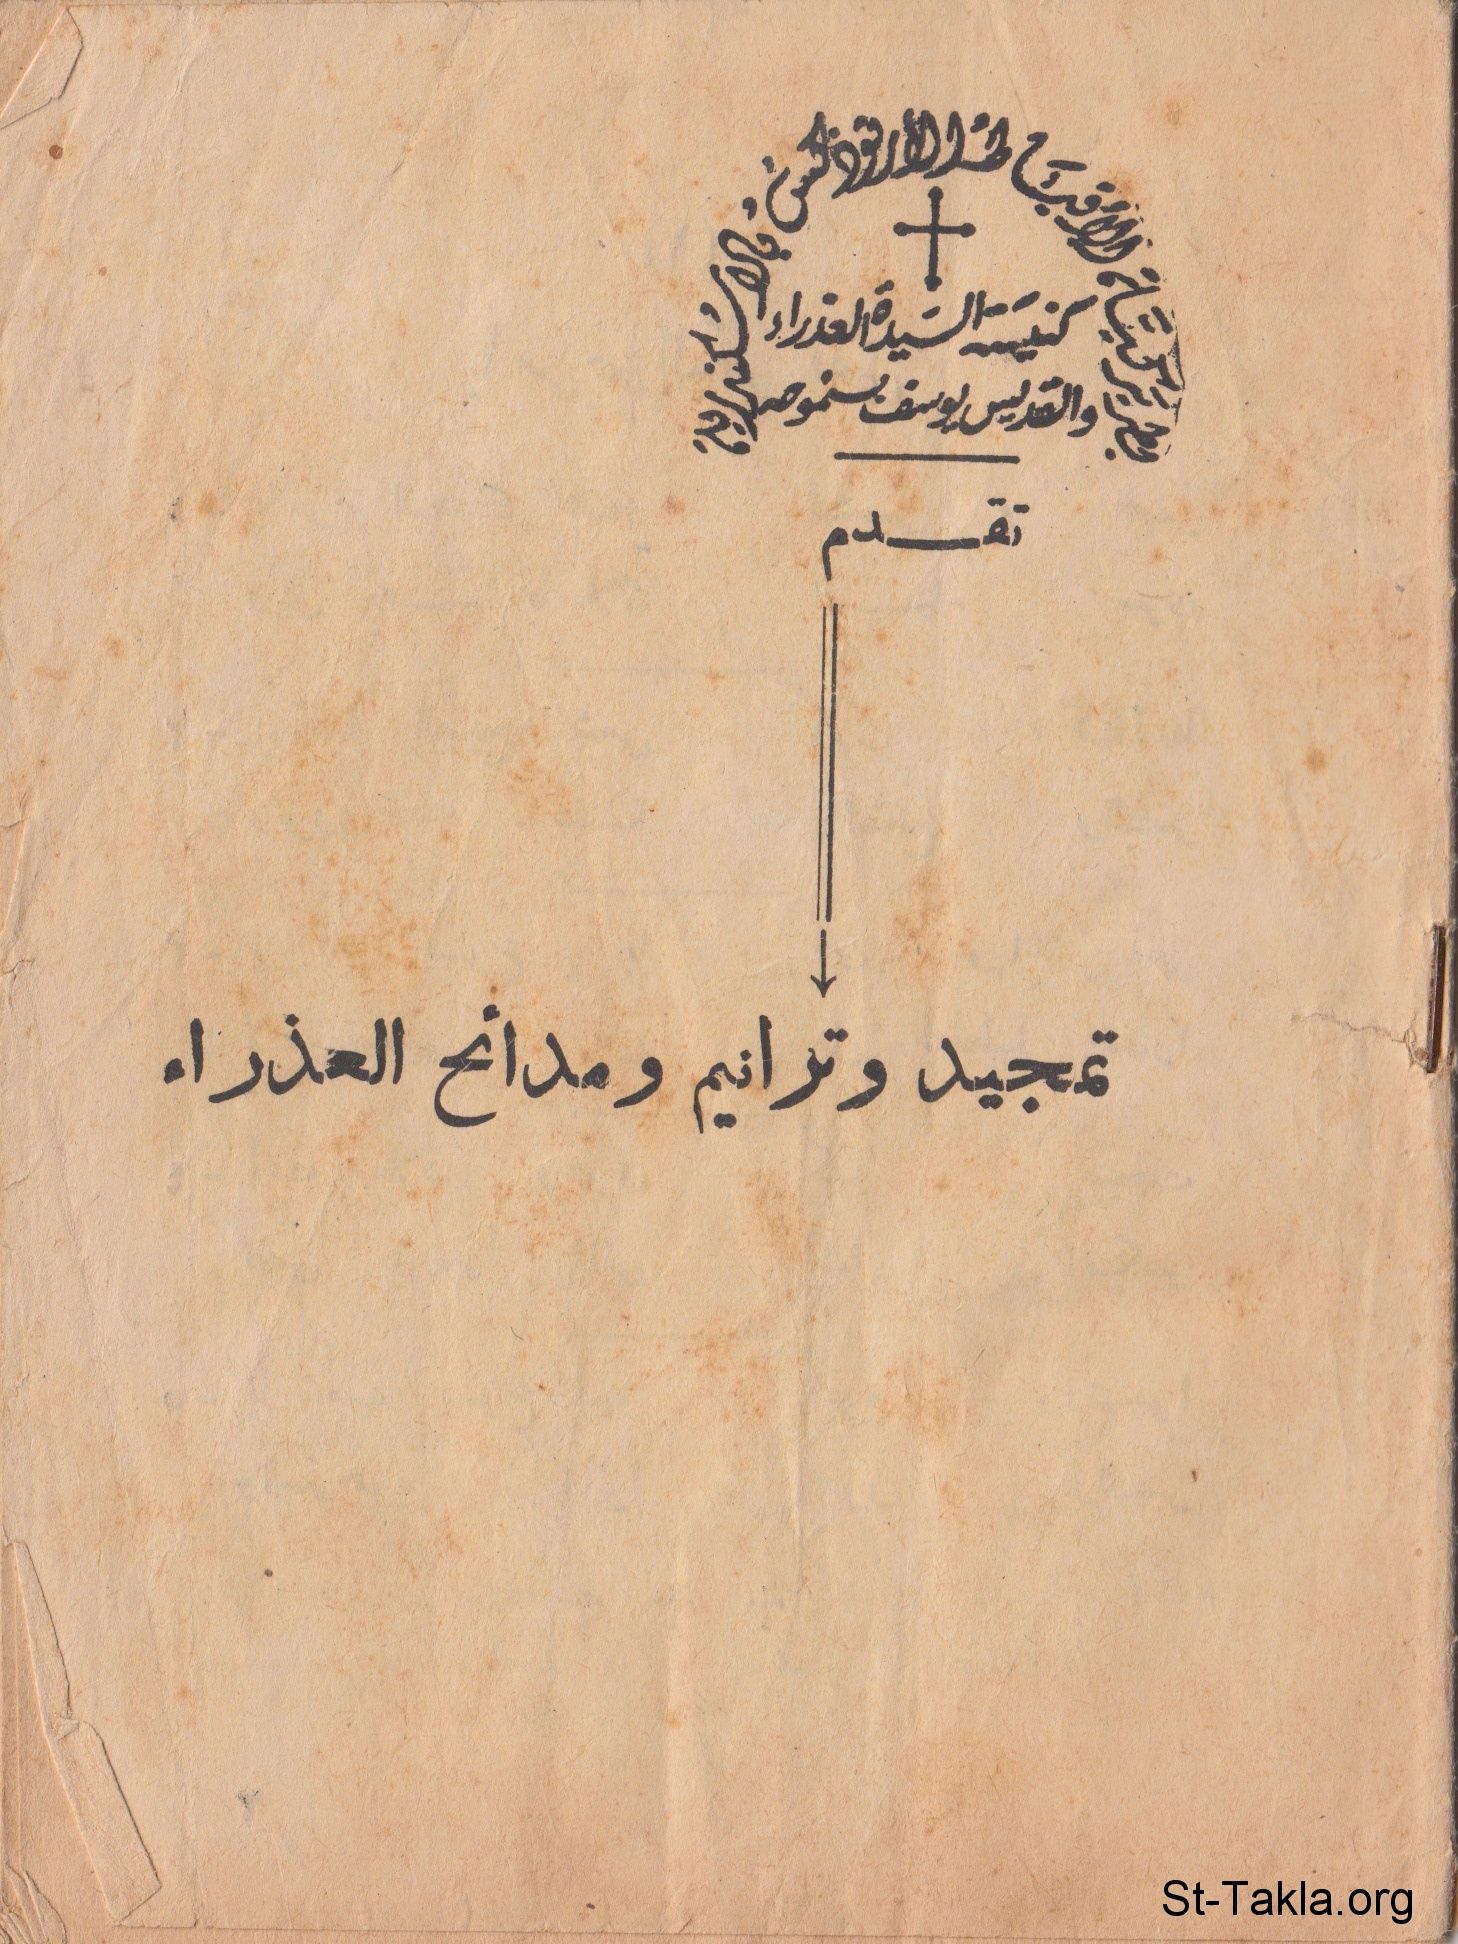 بطريركية الأقباط الأرثوذكس بالاسكندرية
كنيسة السيدة العذراء
والقديس يوسف بسموحه
تقدم
تمجيد وترانيم ومدائح العذراء
St-Takla.org